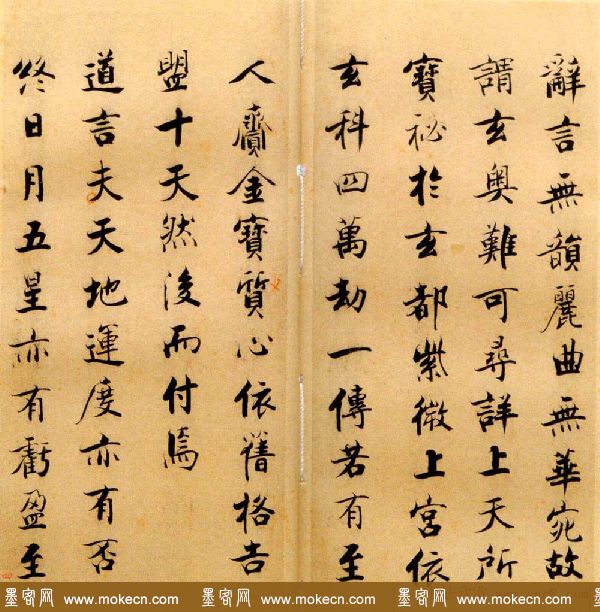 辭言無韻麗曲無華宛故
謂玄奥難可尋詳上天所
寶祕於玄都紫微上宮依
玄科四萬劫一傳若有至
人齎金寶質心依舊格告
盟十天然後而付焉
道言夫天地運度亦有否
終日月五星亦有虧盈至
墨客网 www.mokecn.com 墨客网 www.mokecn.com 墨客网 www.mokecn.com 墨客网 www.mokecn.com